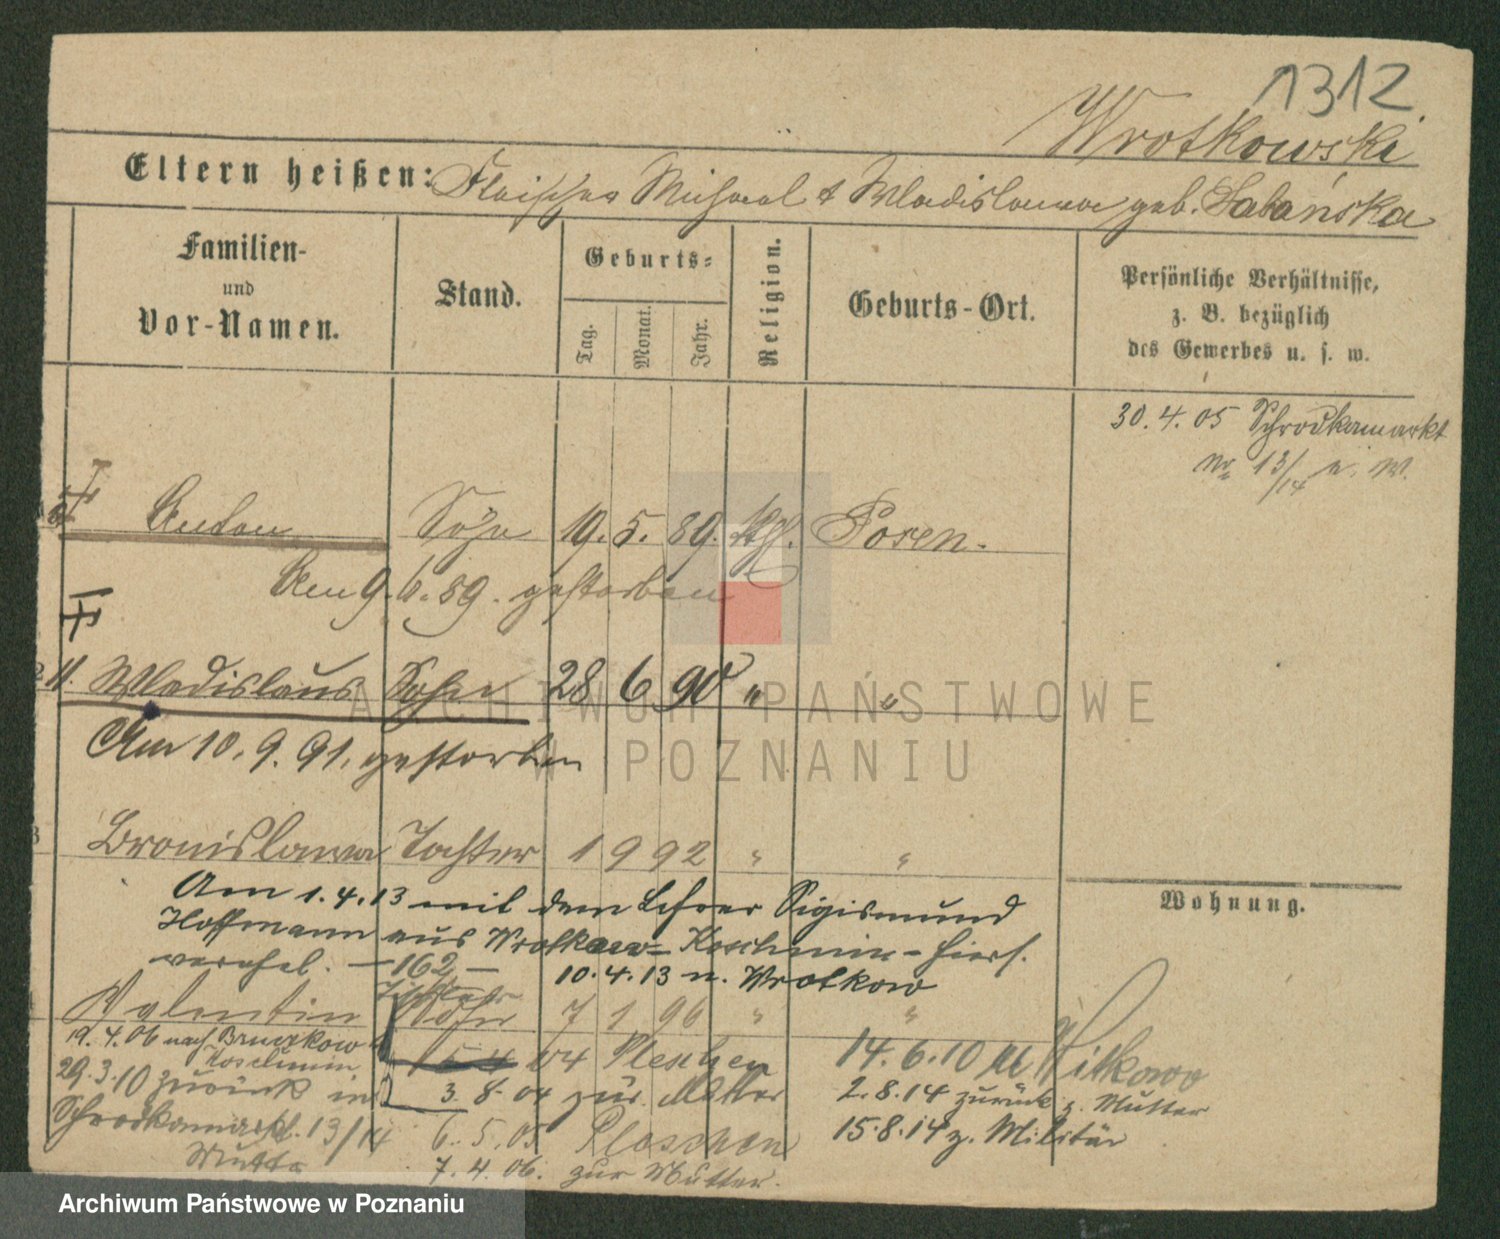 1312
Wrotkowski
Eltern heißen: Fleischer Michael & Wladislawa geb. Labańska
Familien-
und
Vor-Namen.
Stand.
Geburts-
Tag.
Monat.
Jahr.
Religion.
Geburts-Ort.
Persönliche Verhältnisse,
z. B. bezüglich
des Gewerbes u. s. w.
30. 4. 05 Schrodkamarkt
Nr 13/14 n. W.
Anton Sohn 19. 5. 89. Kth. Posen.
Am 9. 6. 89. gestorben
11. Wladislaus Sohn 28 6 90 " "
Am 10. 9. 91. gestorben
3 Bronislawa Tochter 1 9 92 " "
Am 1. 4. 13 mit dem Lehrer Sigismund
Hoffmann aus Wrotkow-Koschmin-hier
verehel. — 162 — 10. 4. 13 n. Wrotkow
Wohnung.
Valentin Sohn 7 1 96 " "
19. 4. 06 nach Bruczkow
Koschmin
29. 3. 10 zurück in
Schrodkamarkt. 13/14
Mutter
15 4 04 Pleschen
3. 8. 04 zur Mutter
6. 5. 05 Pleschen
7. 4. 06. zur Mutter.
14. 6. 10 n Witkowo
2. 8. 14 zurück z. Mutter
15. 8. 14 z. Militär
ARCHIWUM PAŃSTWOWE
W POZNANIU
Archiwum Państwowe w Poznaniu